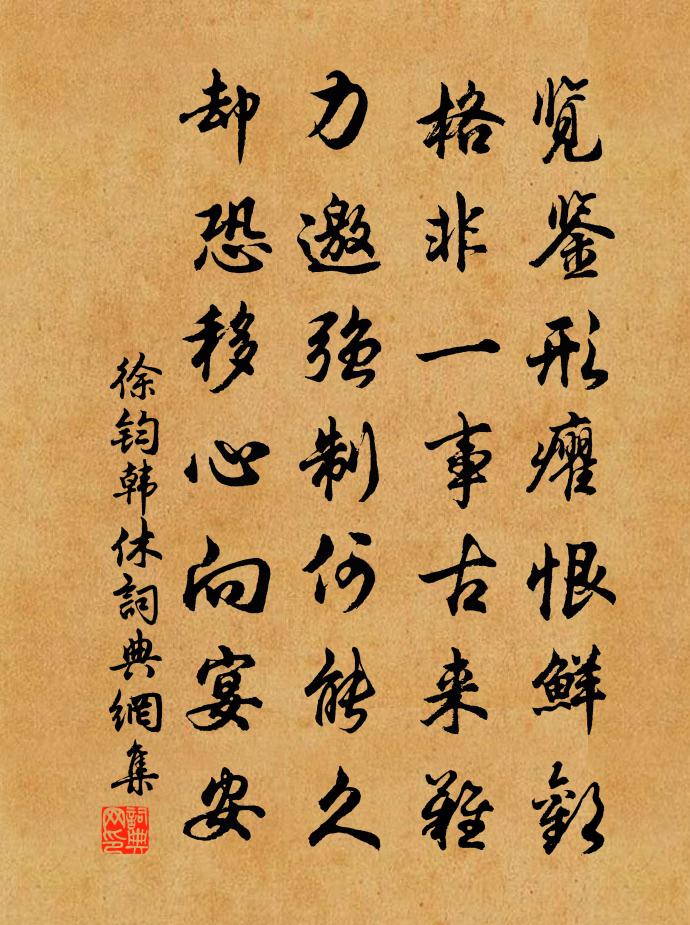 览鉴形癯恨鲜欢
格非一事古来难
力邀强制何能久
却恐移心向宴安
徐钧韩休詞典網集
詞典网印